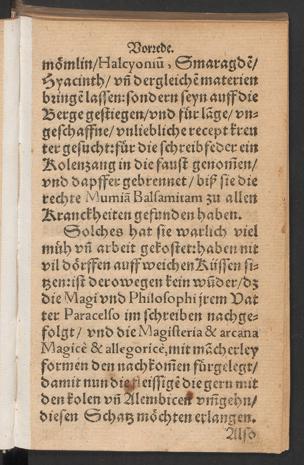 Vorrede.
mömlin/Halcyoniũ, Smaragdẽ/
Hyacinth/ vñ dergleichẽ materien
bringẽ lassen: sondern seyn auff die
Berge gestiegen/vnd für lãge/ vn-
geschaffne/ vnliebliche recept kreu
ter gesucht: für die schreibfeder ein
Kolenzang in die faust genom̃en/
vnd dapffer gebrennet/ biß sie die
rechte Mumiã Balsamitam zu allen
Kranckheiten gefunden haben.
Solches hat sie warlich viel
müh vñ arbeit gekostet: haben nit
vil dörffen auff weichen Küssen si-
tzen: ist derowegen kein wũder/ dz
die Magi vnd Philosophi jrem Vat
ter Paracelso im schreiben nachge-
folgt/ vnd die Magisteria & arcana
Magicè & allegoricè, mit mãcherley
formen den nachkom̃en fürgelegt/
damit nun die fleissige die gern mit
den kolen vñ Alembicen vm̃gehn/
diesen Schatz möchten erlangen.
Also